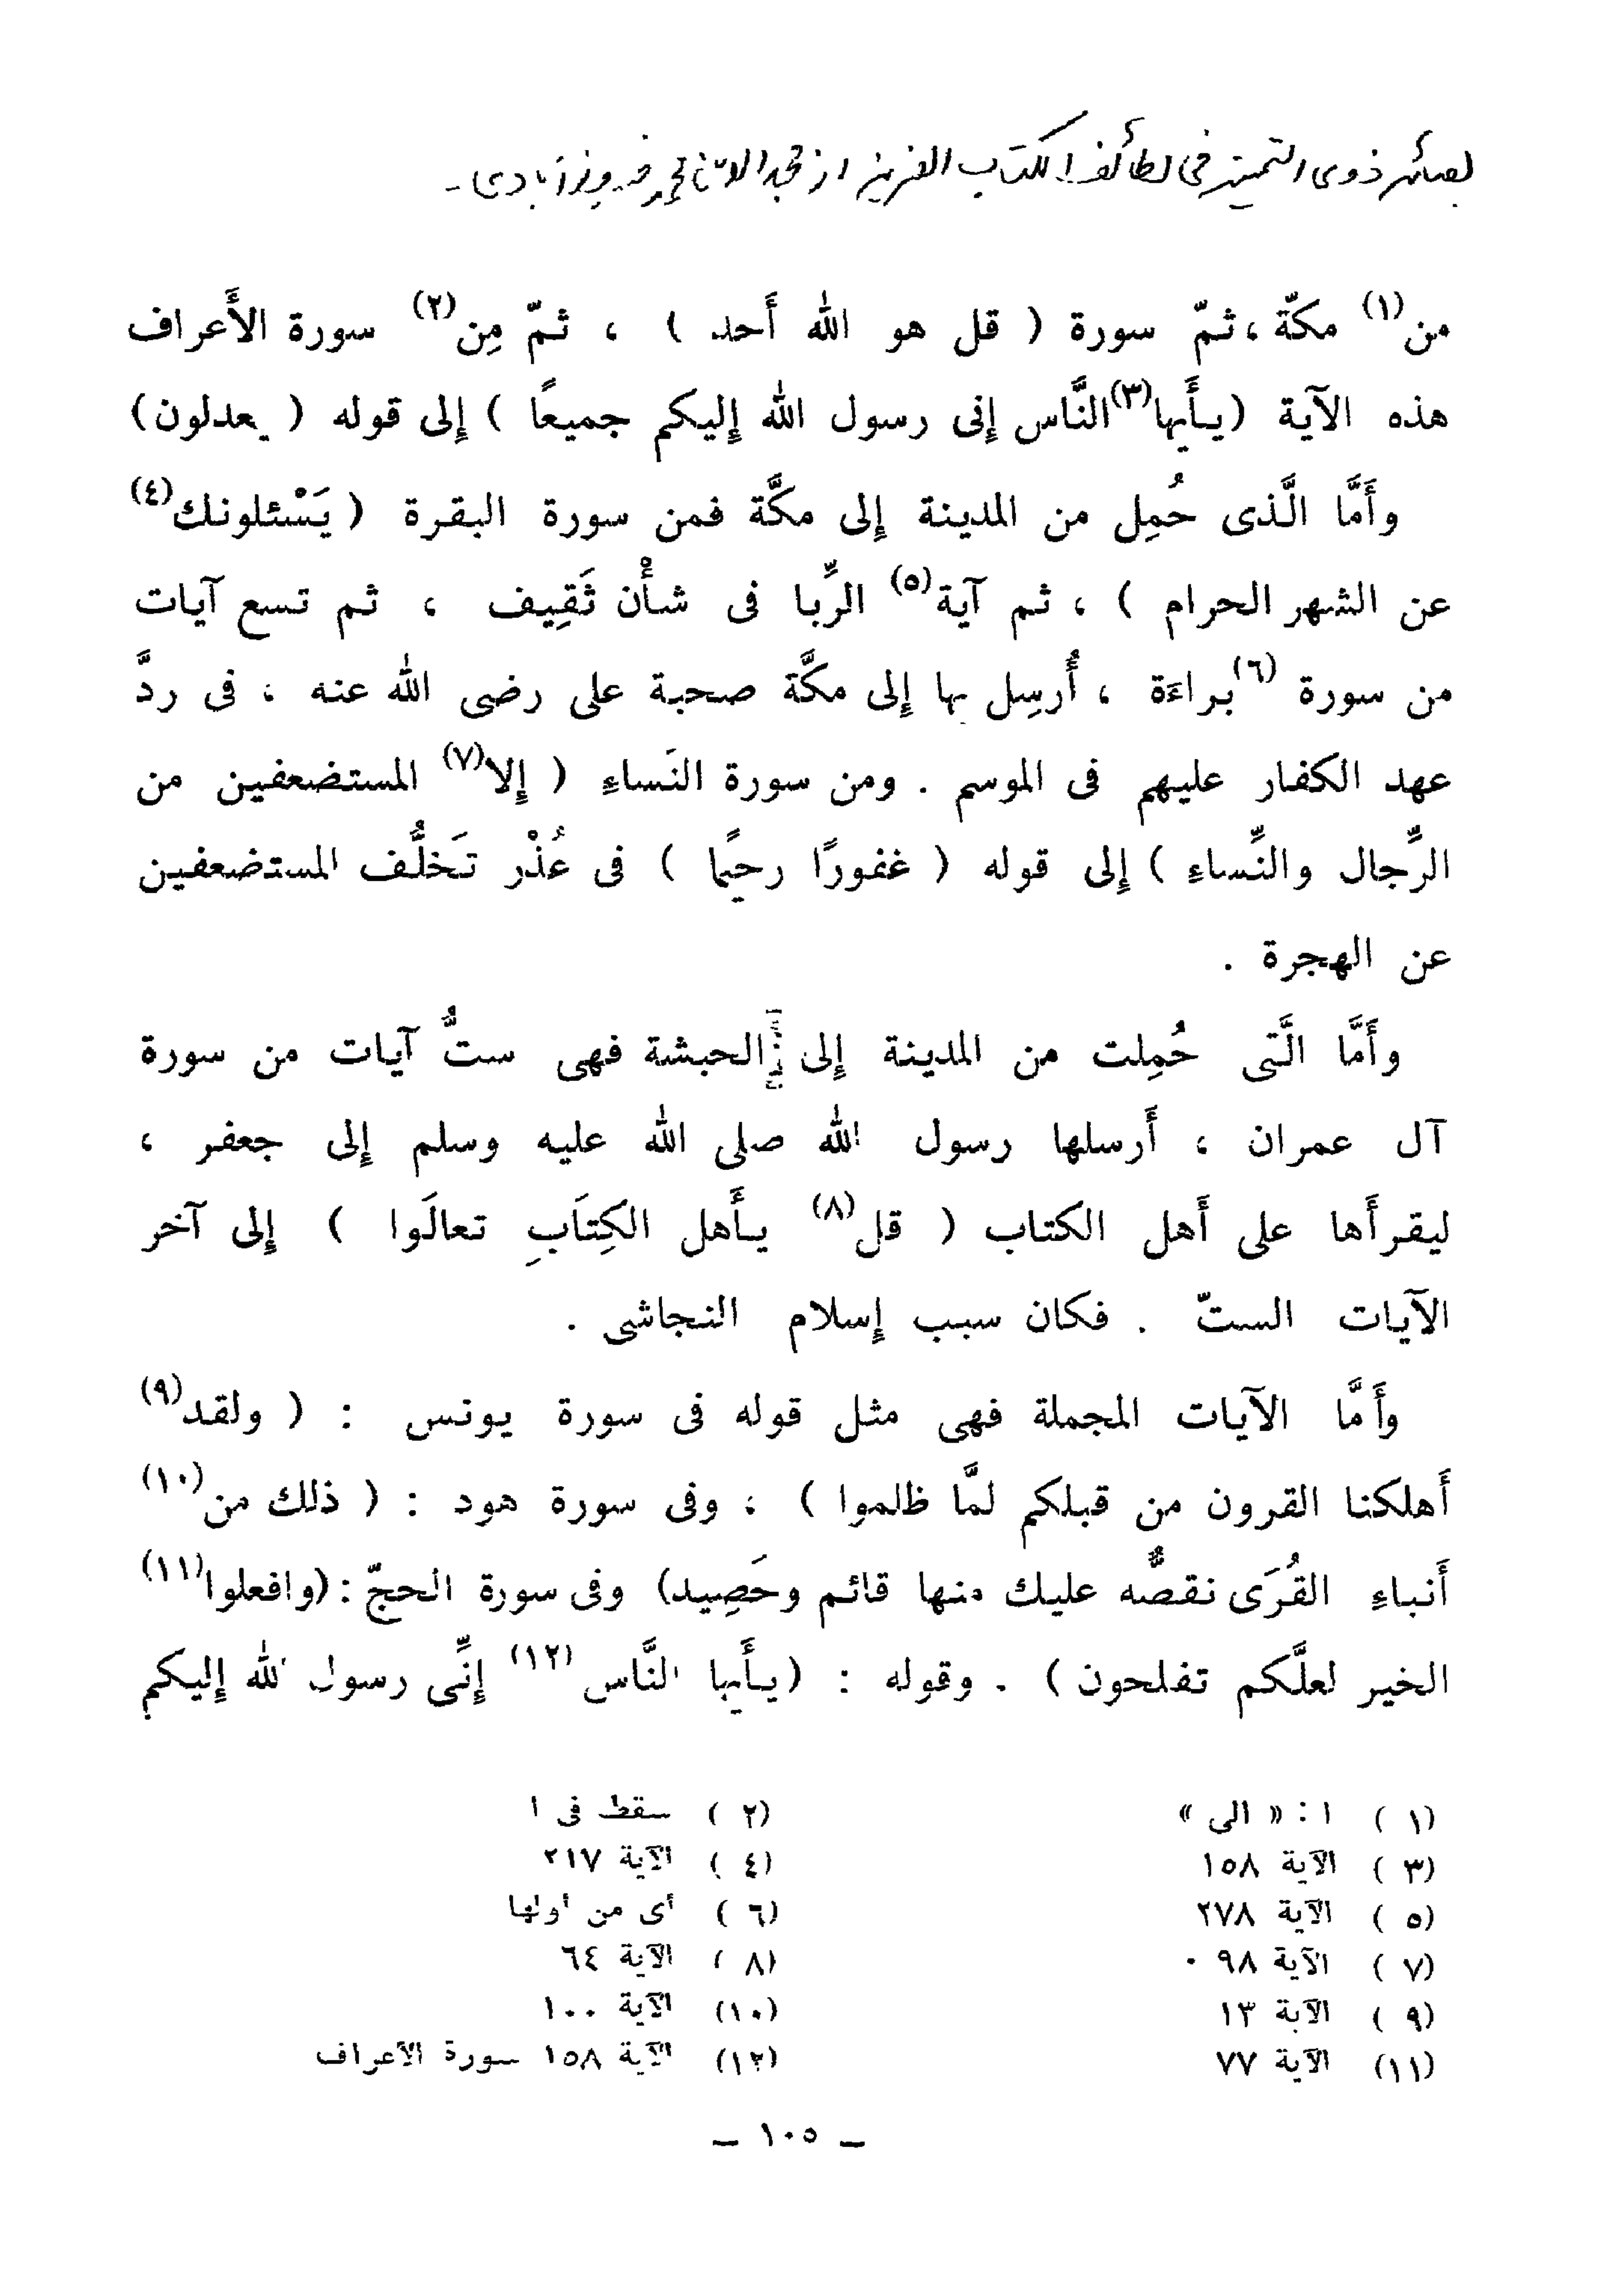 بصائر ذوی التمییز فی لطائف الکتاب العزیز از مجدالدین محمد فیروزآبادی -
من(١) مكّة ، ثمّ سورة ( قل هو الله أَحد ) ، ثمّ مِن(٢) سورة الأَعراف
هذه الآية (يأَيها(٣) النَّاس إِنى رسول الله إِليكم جميعًا ) إِلى قوله ( يعدلون )
وأَمَّا الَّذى حُمِل من المدينة إِلى مكَّة فمن سورة البقرة ( يَسْئلونك(٤)
عن الشهر الحرام ) ، ثم آية(٥) الرِّبا فى شأْن ثَقِيف ، ثم تسع آيات
من سورة (٦)براءَة ، أُرسِل بها إِلى مكَّة صحبة على رضى الله عنه ، فى ردَّ
عهد الكفار عليهم فى الموسم . ومن سورة النَساءِ ( إِلا(٧) المستضعفين من
الرِّجال والنِّساءِ ) إِلى قوله ( غفورًا رحيًما ) فى عُذْر تَخلُّف المستضعفين
عن الهجرة .
وأَمَّا الَّتى حُمِلت من المدينة إِلى الحبشة فهى ستٌّ آيات من سورة
آل عمران ، أَرسلها رسول الله صلى الله عليه وسلم إِلى جعفر ،
ليقرأَها على أَهل الكتاب ( قل(٨) يأَهل الكِتَابِ تعالَوا ) إِلى آخر
الآيات الستّ . فكان سبب إِسلام النجاشى .
وأَمَّا الآيات المجملة فهى مثل قوله فى سورة يونس : ( ولقد(٩)
أَهلكنا القرون من قبلكم لمَّا ظلموا ) ، وفى سورة هود : ( ذلك من(١٠)
أَنباءِ القُرَى نقصُّه عليك منها قائم وحَصِيد) وفى سورة الحجّ : (وافعلوا(١١)
الخير لعلَّكم تفلحون ) . وقوله : (يأَيها النَّاس (١٢) إِنِّى رسول الله إِليكم
(١ ) ا : « الى » (٢ ) سقط فى ا
(٣ ) الآية ١٥٨ (٤ ) الآية ٢١٧
(٥ ) الآية ٢٧٨ (٦ ) أى من أولها
(٧ ) الآية ٩٨ . (٨ ) الآية ٦٤
(٩ ) الآية ١٣ (١٠) الآية ١٠٠
(١١) الآية ٧٧ (١٢) الآية ١٥٨ سورة الأعراف
— ١٠٥ —